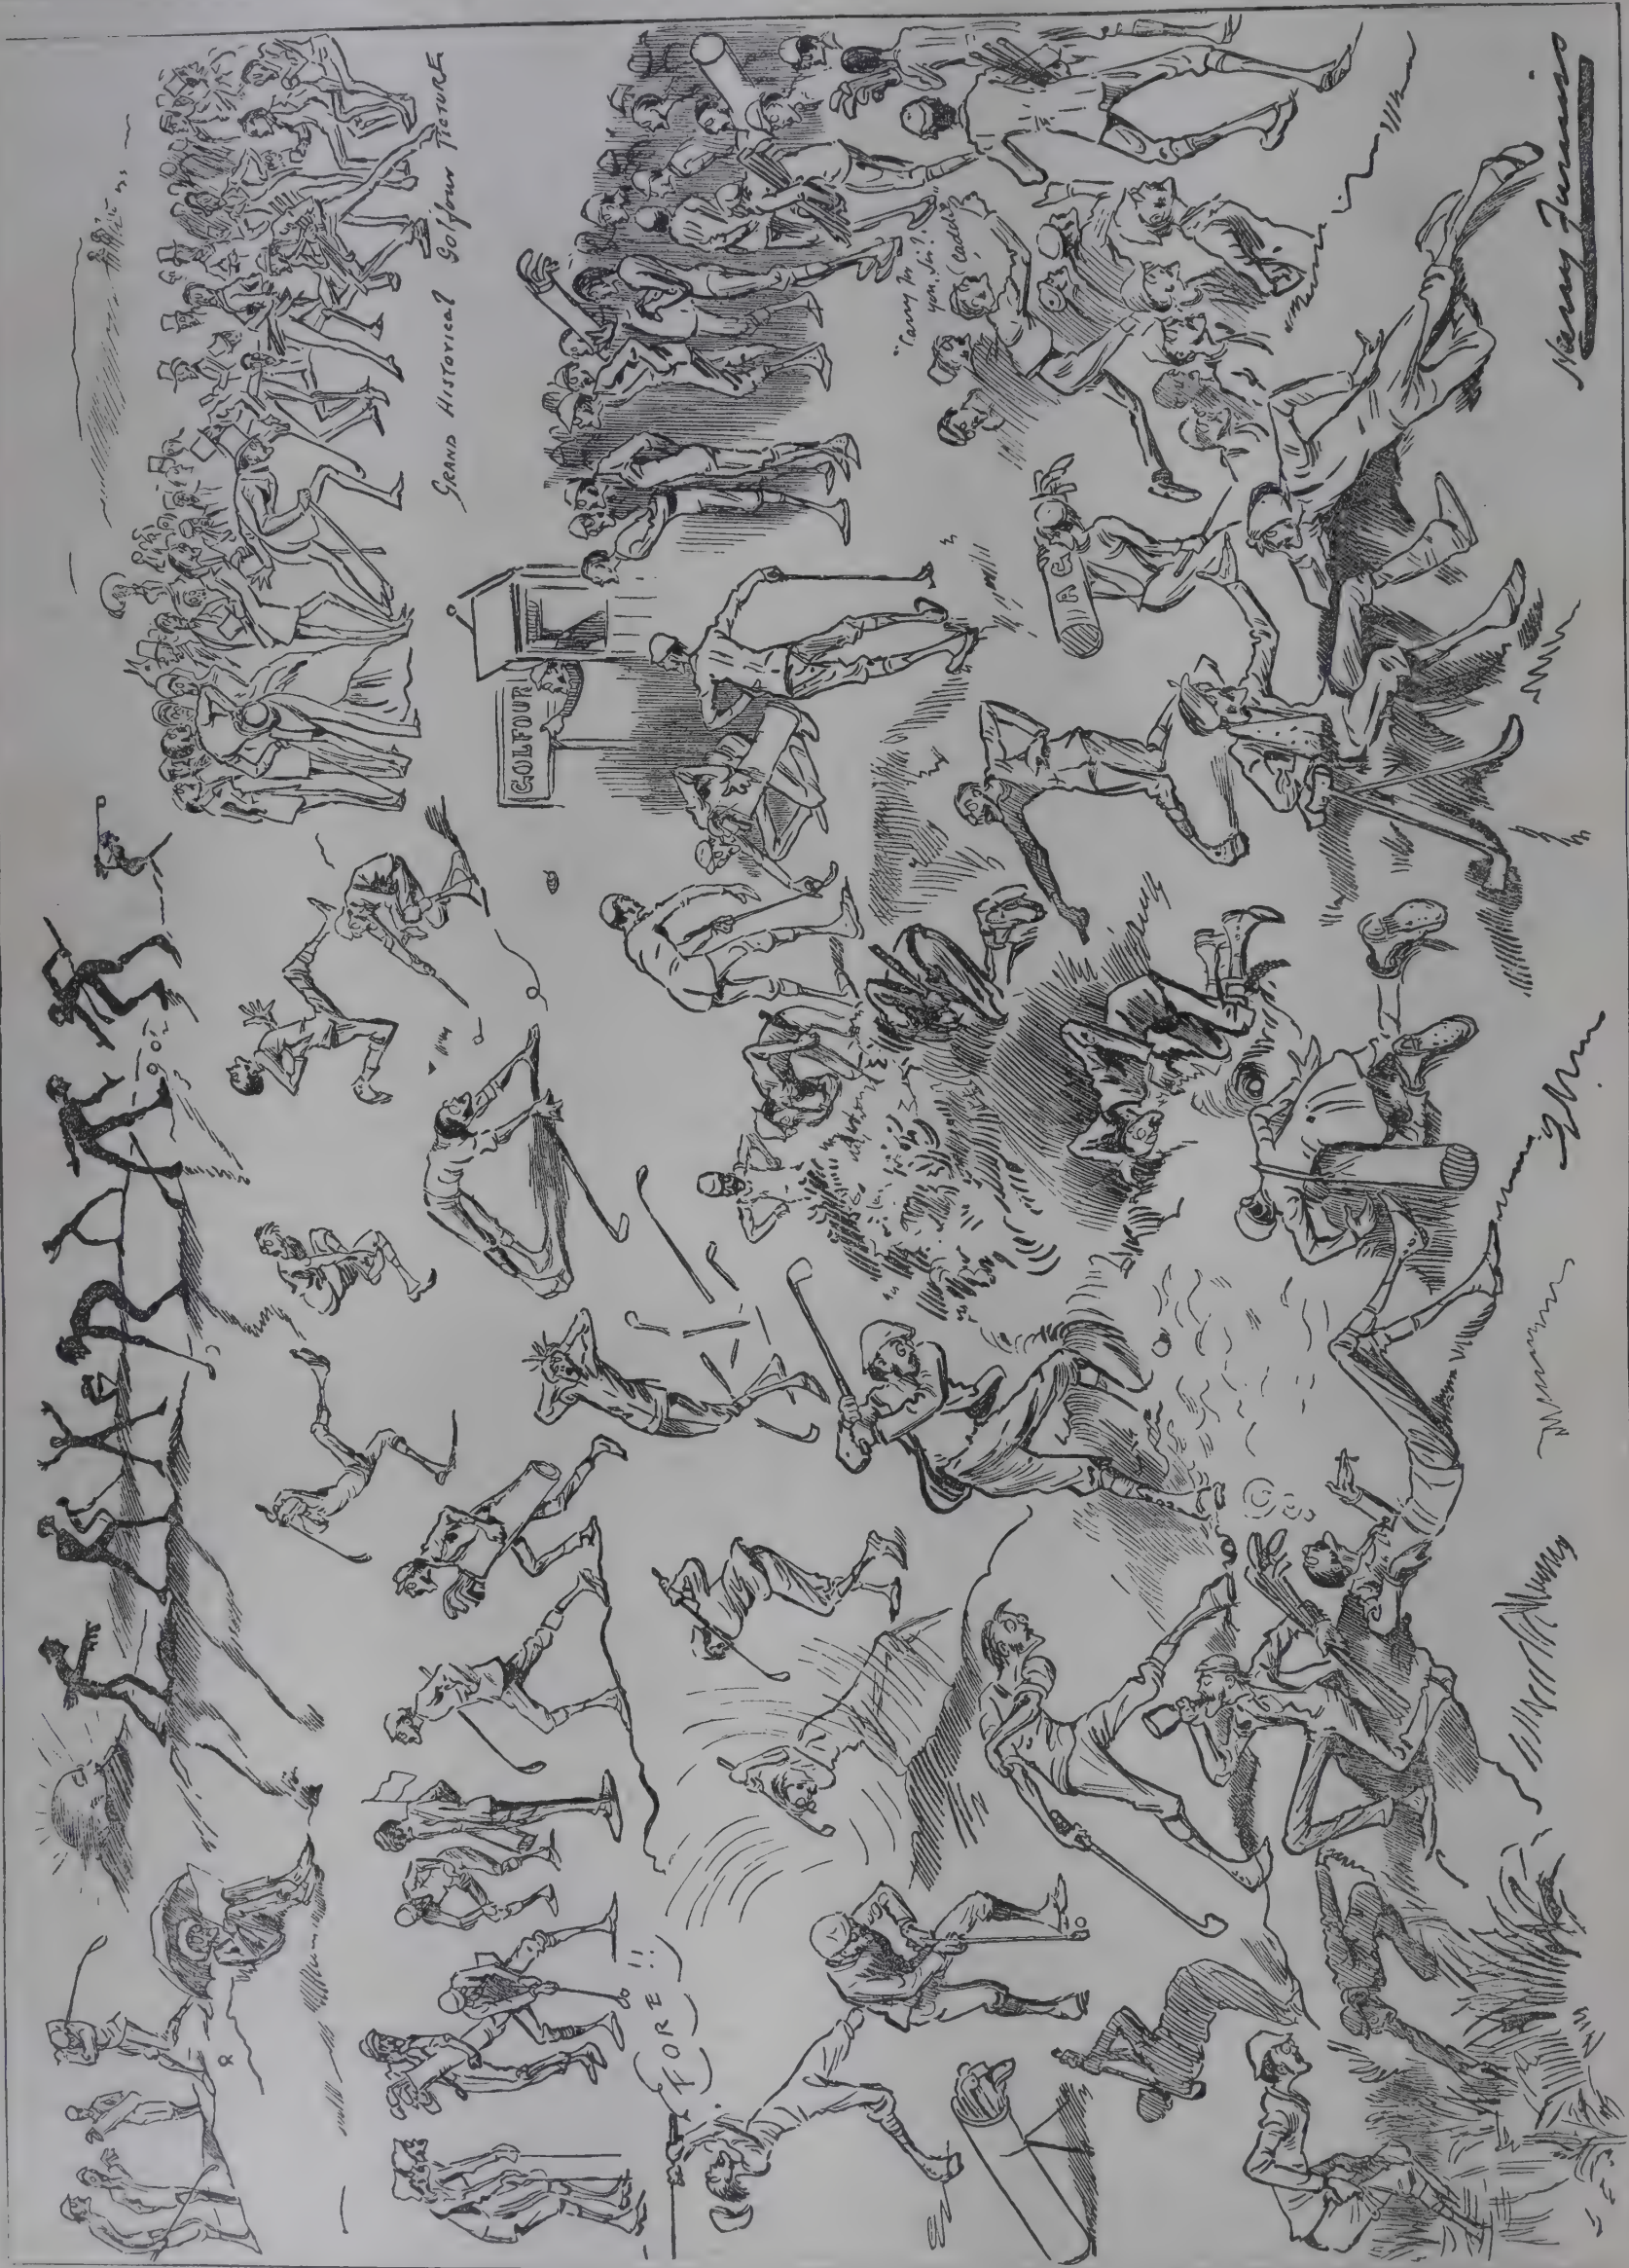 GRAND HISTORICAL Golfour PICTURE
GOLFOUR
"Carry for
you, Sir?"
(Caddies)
FORE!!
A.G.
Harry Furniss